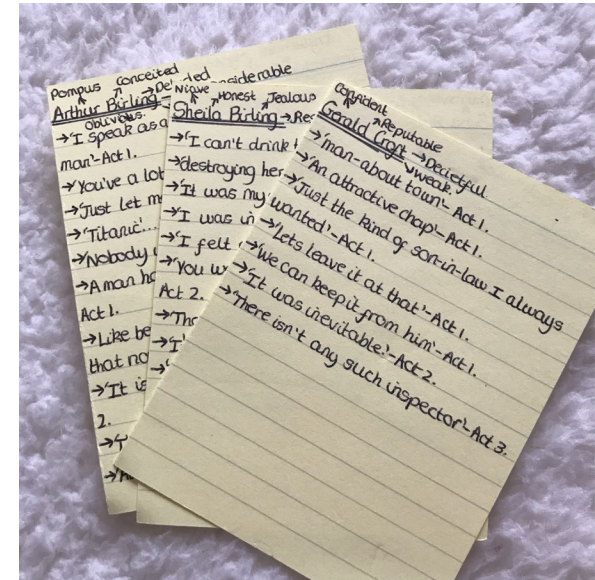 Pompus conceited
Arthur Birling
oblivious.
→'I speak as a
man'-Act 1.
→'You've a lot
→'Just let m
→'Titanic'...
→'Nobody
→'A man ha
Act 1.
→'Like be
that no
→'It is
2.
Niave Honest Jealous
Sheila Birling
→'I can't drink
→'destroying her
→'It was my
→'I was in
→'I felt
→'You w
Act 2.
Confident Reputable
Gerald Croft →Decietful
weak.
→'man-about town'-Act 1.
→'An attractive chap'-Act 1.
→'Just the kind of son-in-law I always
wanted'-Act 1.
→'Lets leave it at that'-Act 1.
→'We can keep it from him'-Act 1.
→'It was inevitable.'-Act 2.
→'There isn't any such inspector'-Act 3.